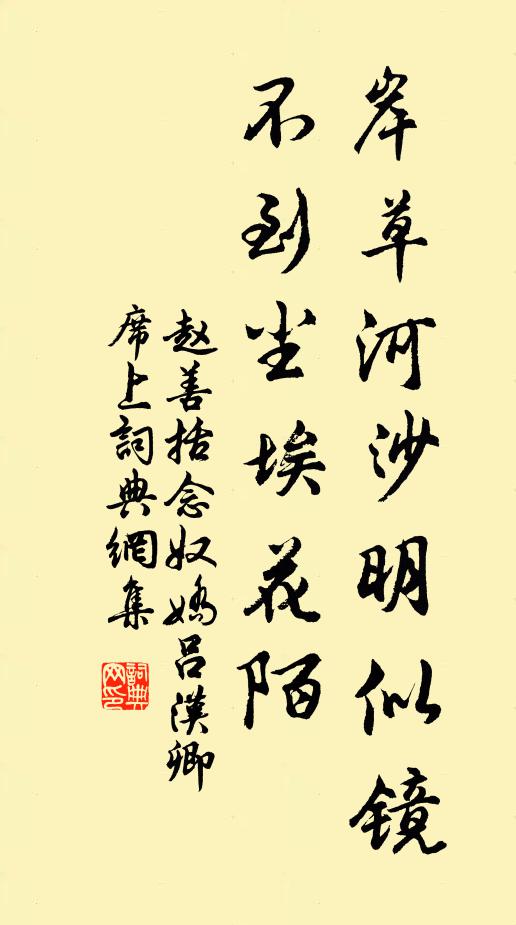 岸草河沙明似镜
不到尘埃花陌
赵善括念奴娇吕漢卿
席上詞典網集
詞典網印